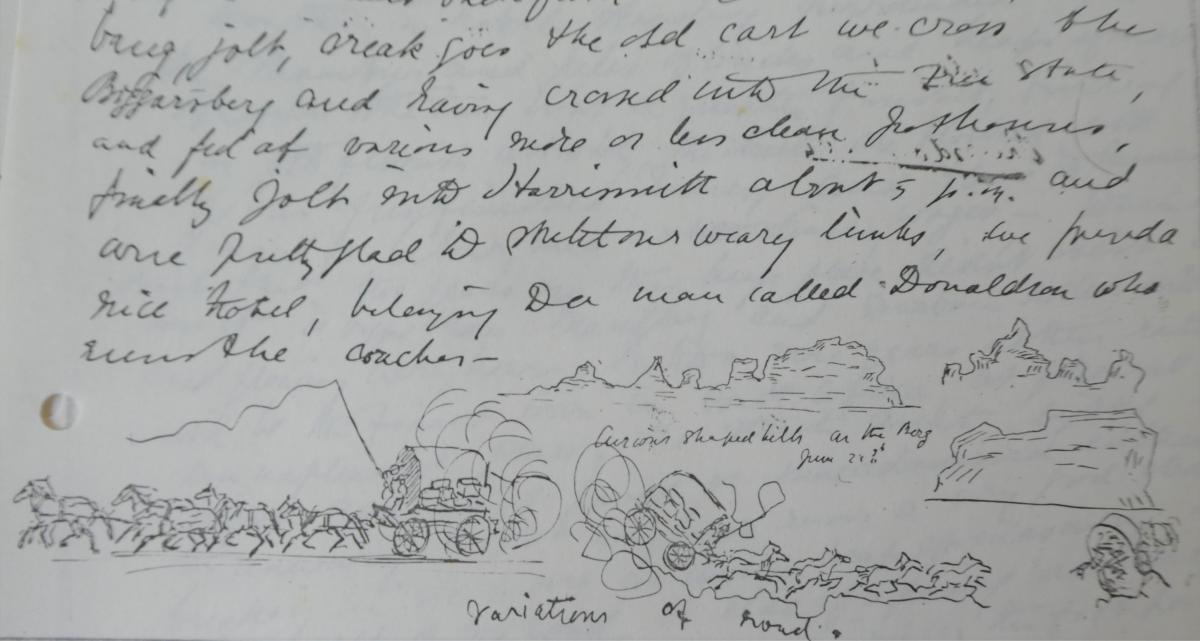 bang, jolt, creak goes the old cart we cross the
Biggarsberg and having crossed into the Free State,
and fed at various more or less clean pothouses,
finally jolt into Harrismith about 5 p.m. and
are pretty glad to stretch our weary limbs, we find a
nice hotel, belonging to a man called Donaldson who
runs the coaches —
Curious shaped hills on the Berg
June 22
Variations of road.